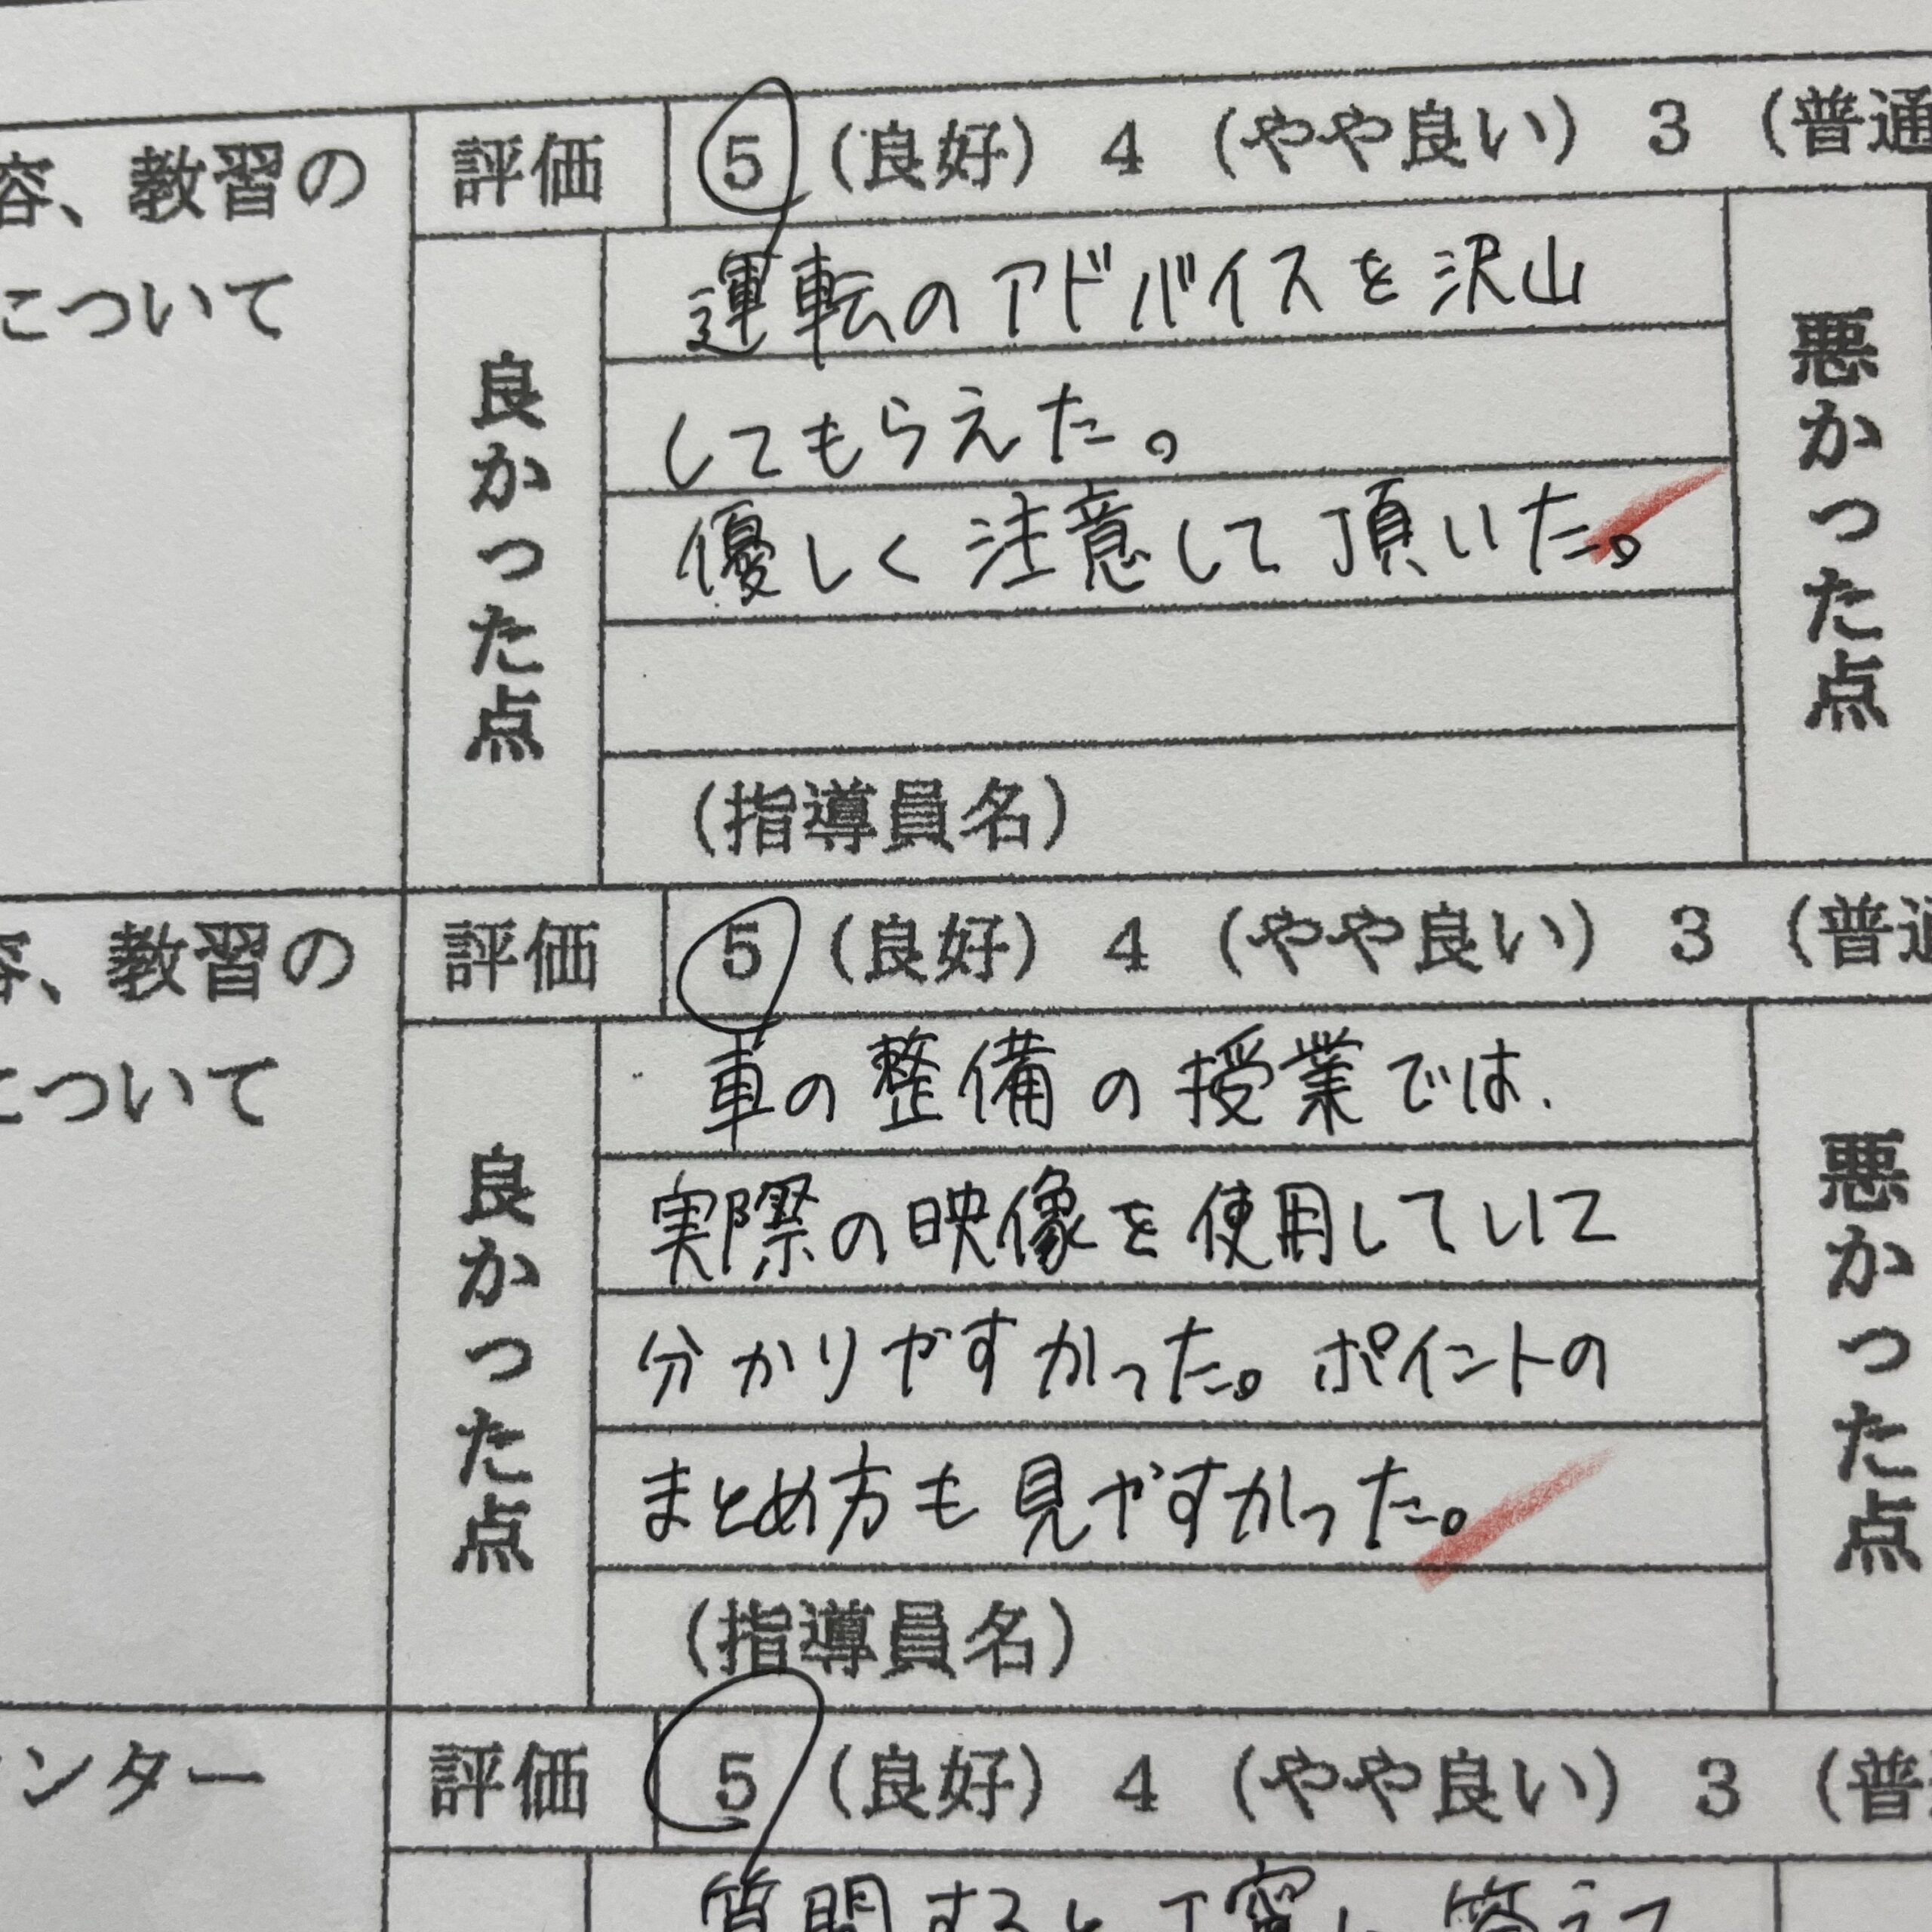 容、教習の
評価 5 (良好) 4 (やや良い) 3 (普通
について
良かった点
運転のアドバイスを沢山
してもらえた。
優しく注意して頂いた。
(指導員名)
悪かった点
容、教習の
評価 5 (良好) 4 (やや良い) 3 (普通
について
良かった点
車の整備の授業では、
実際の映像を使用していて
分かりやすかった。ポイントの
まとめ方も見やすかった。
(指導員名)
悪かった点
ンター
評価 5 (良好) 4 (やや良い) 3 (普
質問すると丁寧に答えて